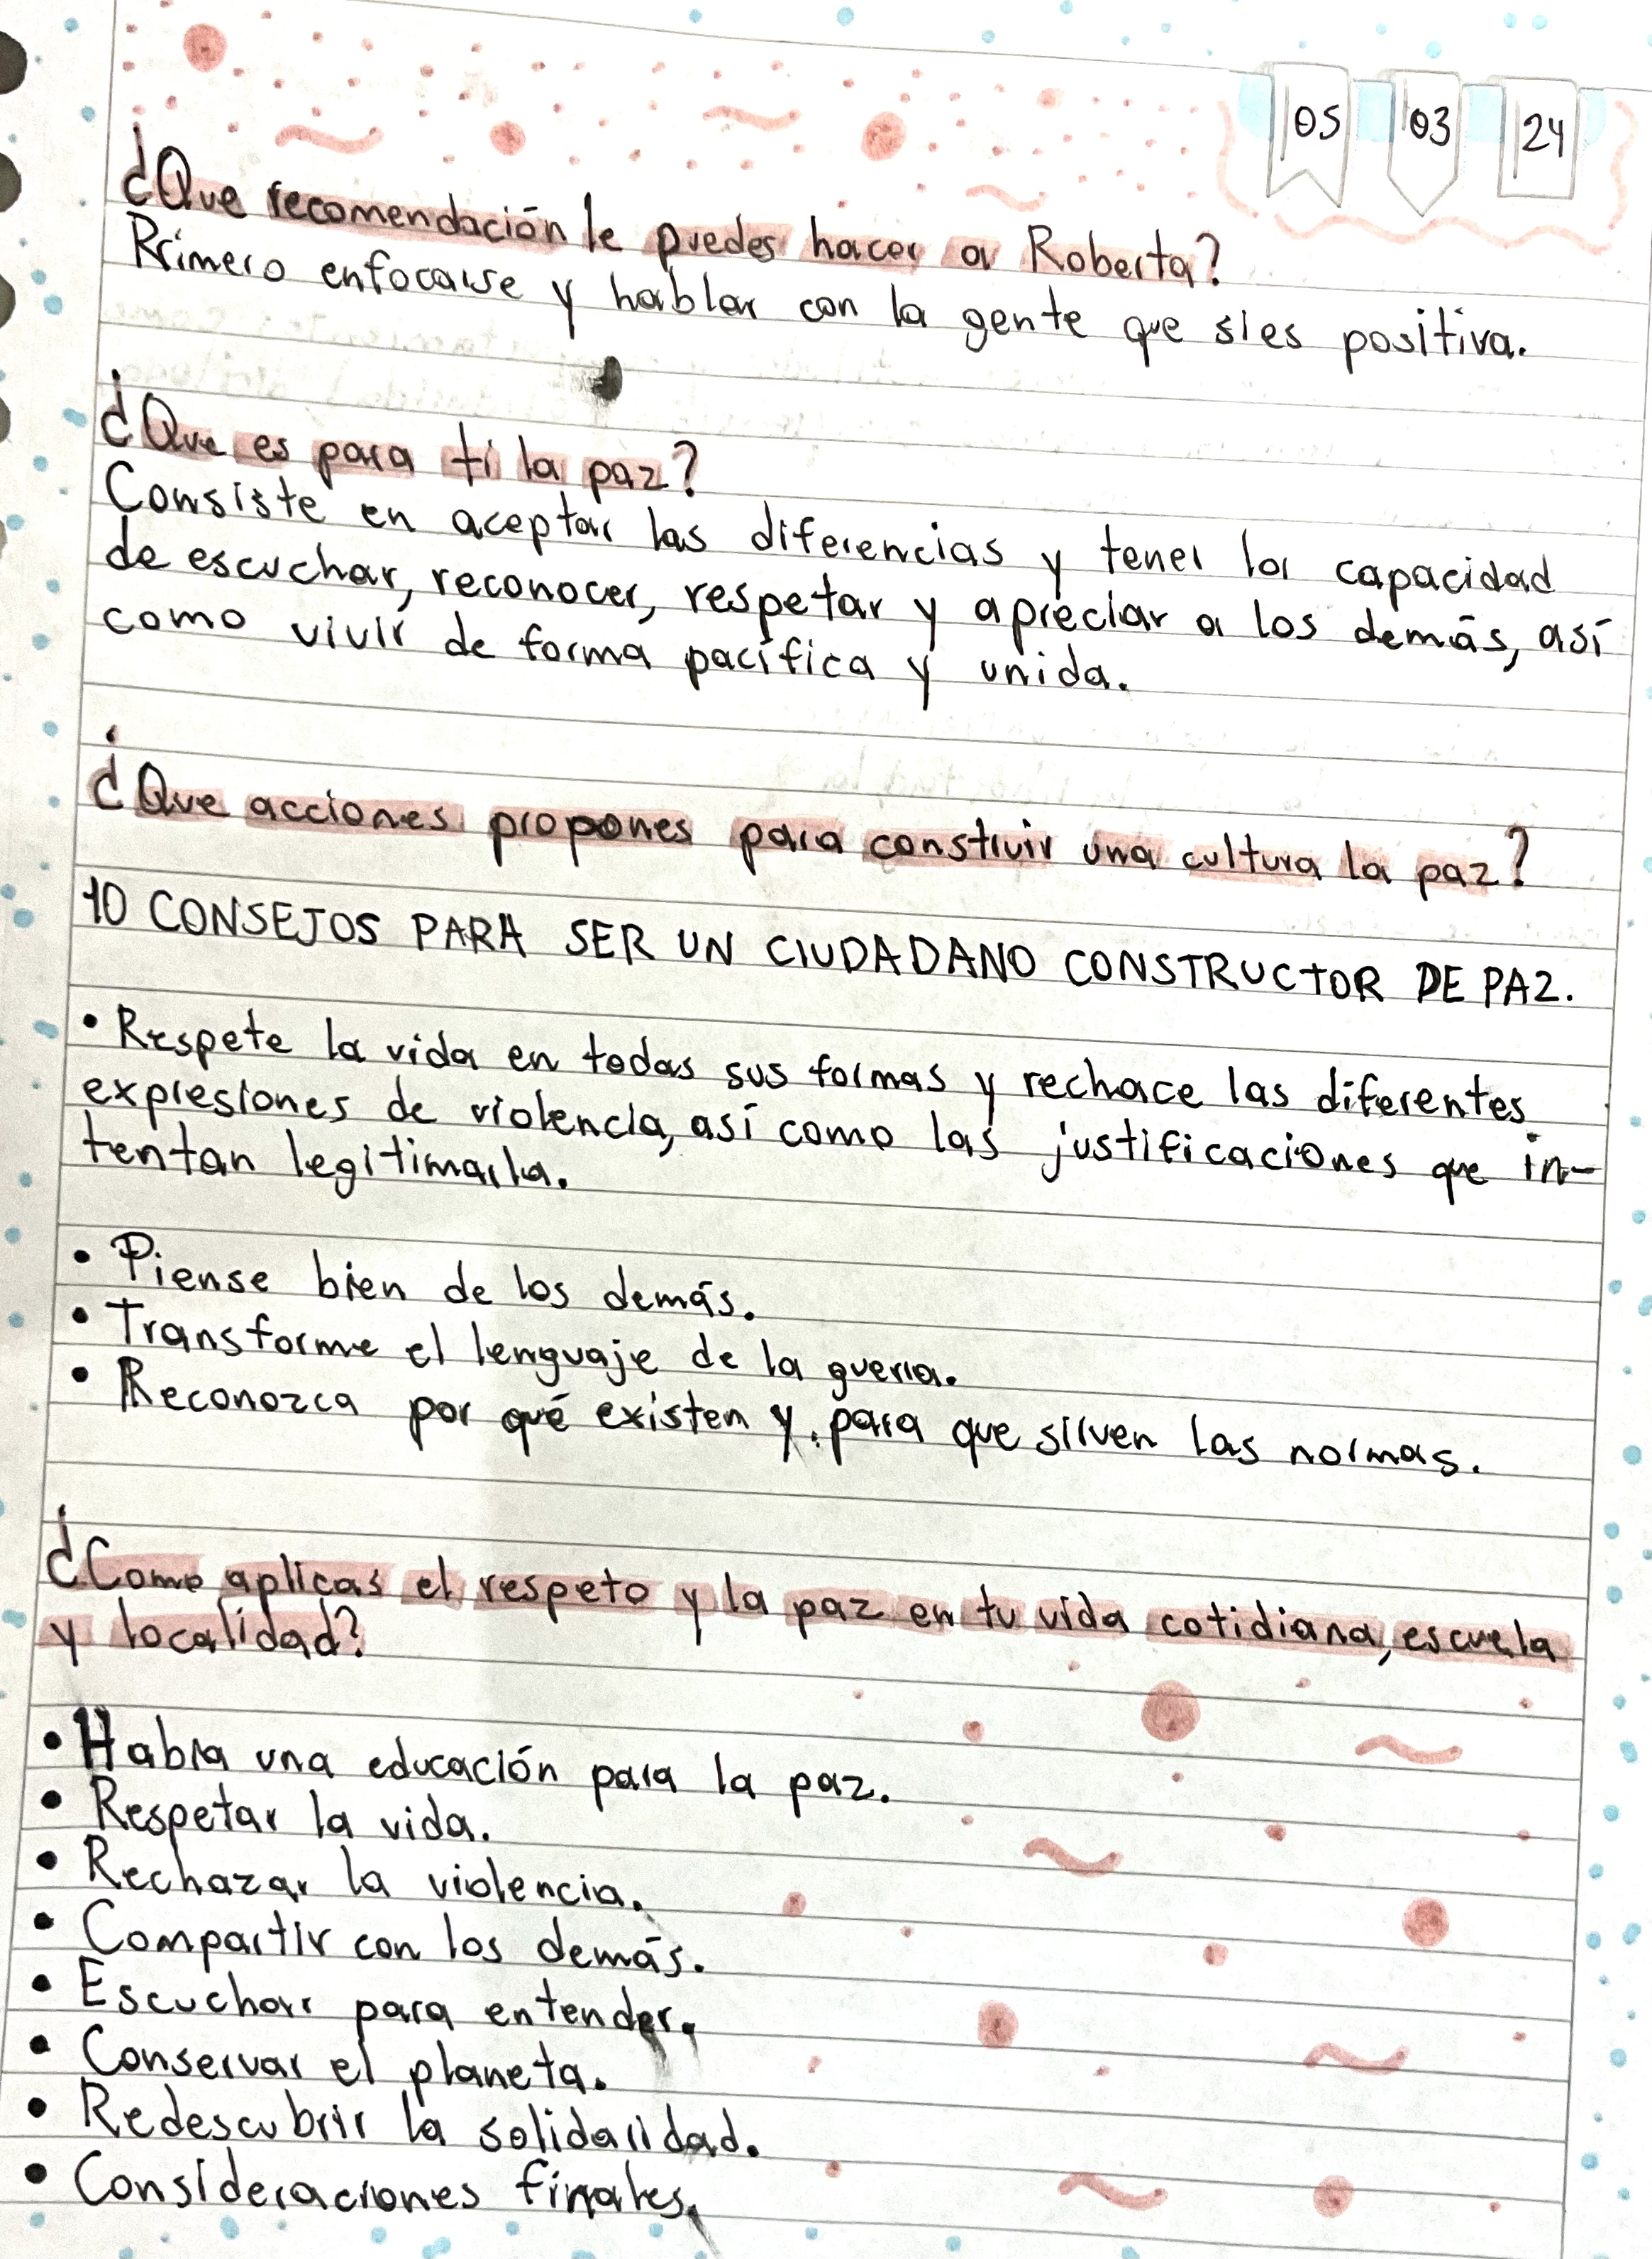 05 03 24
¿Que recomendación le puedes hacer a Roberta?
Primero enfocarse y hablar con la gente que si es positiva.
¿Que es para ti la paz?
Consiste en aceptar las diferencias y tener la capacidad
de escuchar, reconocer, respetar y apreciar a los demás, así
como vivir de forma pacífica y unida.
¿Que acciones propones para construir una cultura la paz?
10 CONSEJOS PARA SER UN CIUDADANO CONSTRUCTOR DE PAZ.
• Respete la vida en todas sus formas y rechace las diferentes
expresiones de violencia, así como las justificaciones que in-
tentan legitimarla.
• Piense bien de los demás.
• Transforme el lenguaje de la guerra.
• Reconozca por qué existen y para que sirven las normas.
¿Como aplicas el respeto y la paz en tu vida cotidiana, escuela
y localidad?
• Habra una educación para la paz.
• Respetar la vida.
• Rechazar la violencia.
• Compartir con los demás.
• Escuchar para entender.
• Conservar el planeta.
• Redescubrir la solidaridad.
• Consideraciones finales.